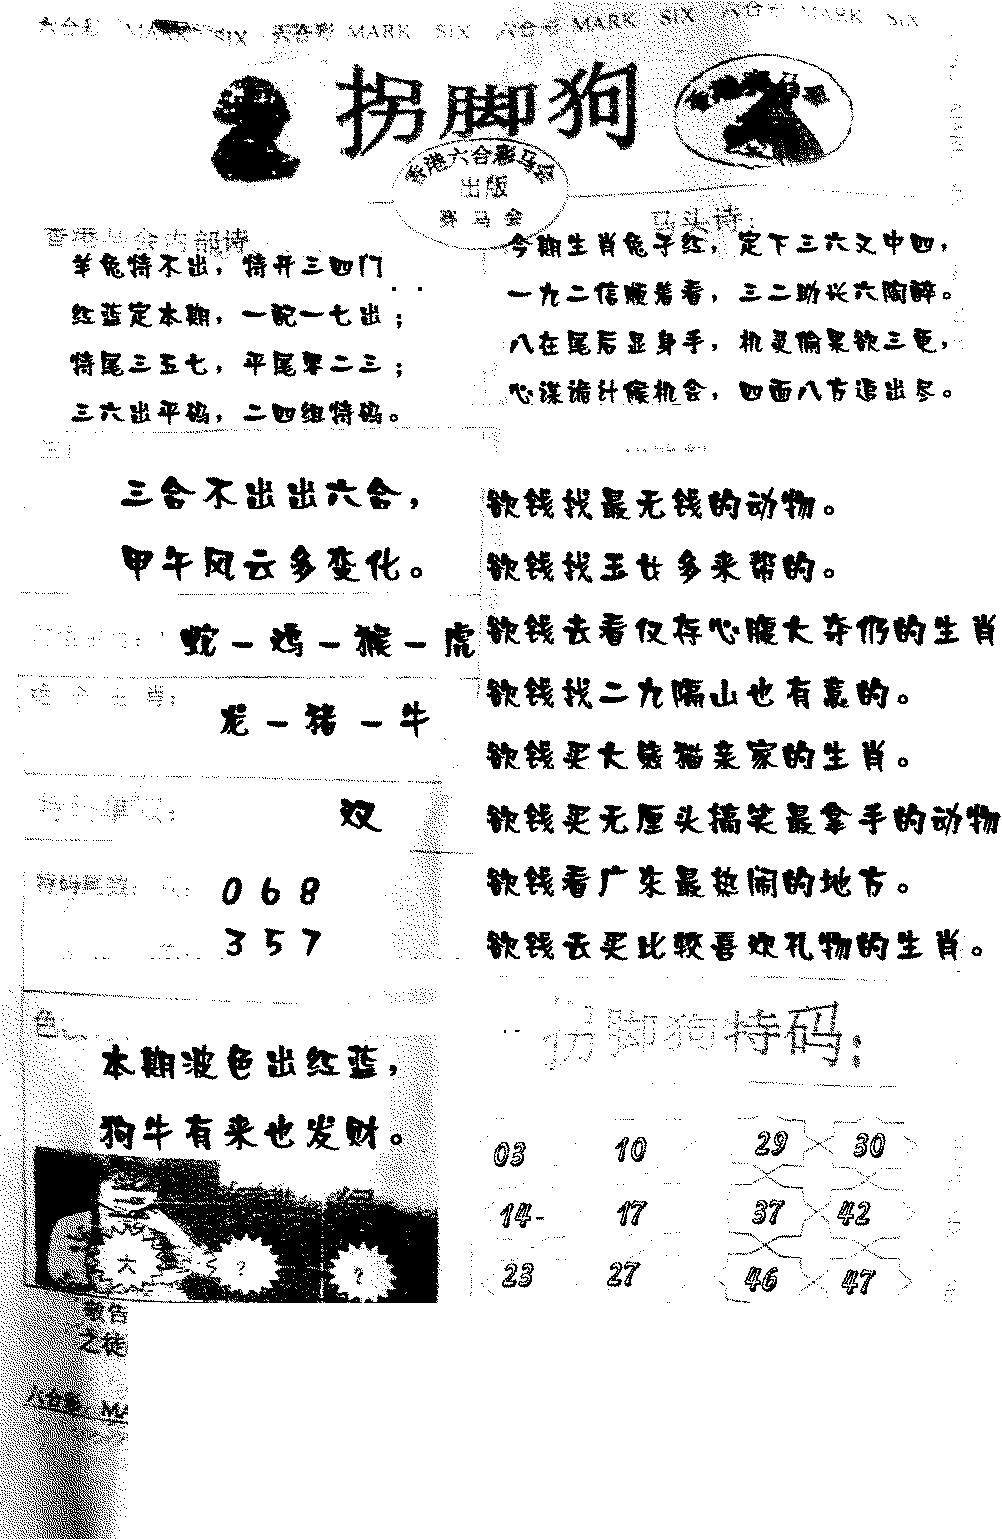 六合彩 MARK SIX 六合彩 MARK SIX 六合彩 MARK SIX 六合彩 MARK SIX
拐脚狗
香港六合彩马会
出版
赛马会
香港马会内部诗
羊兔特不出，特开三四门
红蓝定本期，一配一七出；
特尾三五七，平尾零二三；
三六出平码，二四组特码。
马头诗：
今期生肖兔子红，定下三六又中四，
一九二信顺着看，三二助长六陶醉。
八在尾后显身手，机灵偷果欲三更，
心谋诡计候机会，四面八方追出尽。
三合不出出六合，
甲午风云多变化。
蛇－鸡－猴－虎
龙－猪－牛
双
0 6 8
3 5 7
色
本期波色出红蓝，
狗牛有来也发财。
大 ? ?
敬告
之徒
六合彩 MA
欲钱找最无钱的动物。
欲钱找玉女多来帮的。
欲钱去看仅存心腹大夯仍的生肖
欲钱找二九隔山也有意的。
欲钱买大熊猫亲家的生肖。
欲钱买无厘头搞笑最拿手的动物
欲钱看广东最热闹的地方。
欲钱去买比较喜欢礼物的生肖。
拐脚狗特码：
03 10 29 30
14- 17 37 42
23 27 46 47